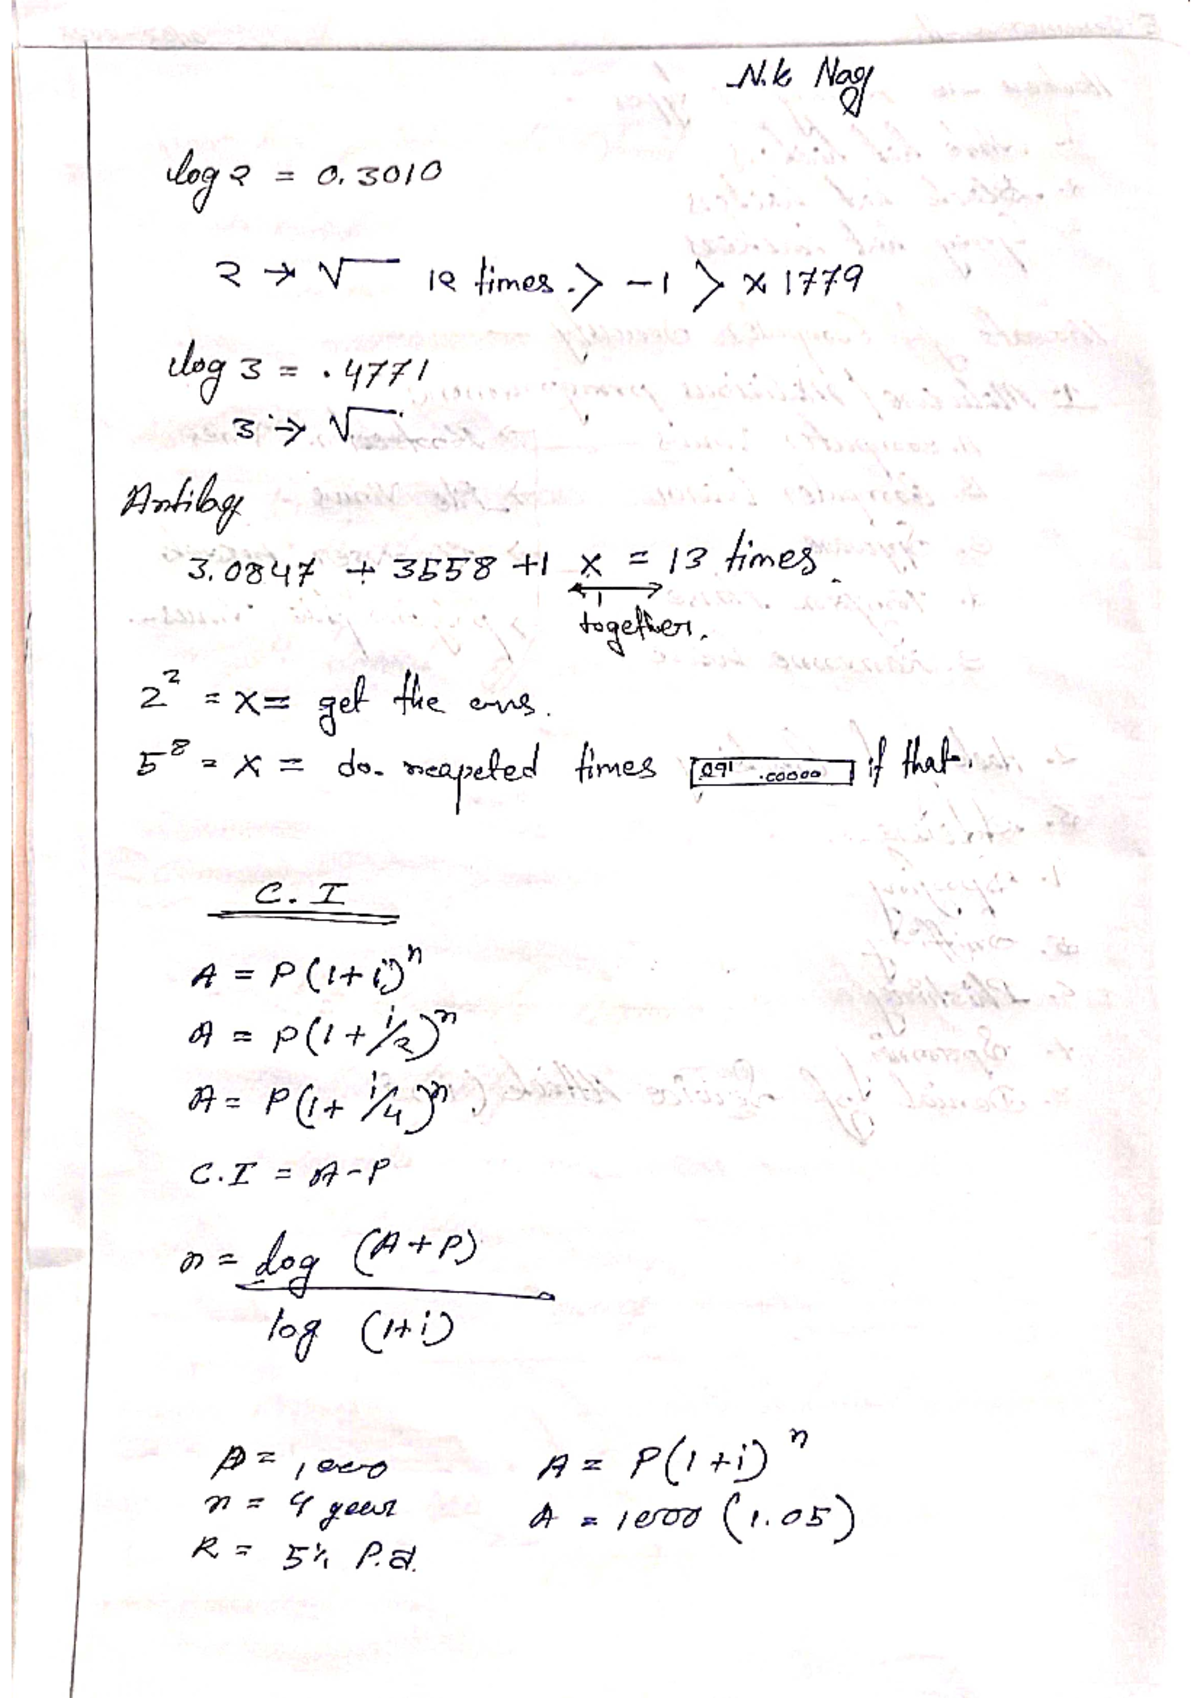 N.k Nag
log 2 = 0.3010
2 → √ 12 times > -1 > × 1779
log 3 = .4771
3 → √
Antilog
3.0847 ÷ 3558 +1 × = 13 times.
together.
2² = x = get the ans.
5⁸ = x = do. reapeted times .00000 if that.
C.I
A = P(1+i)ⁿ
A = P(1+i/2)ⁿ
A = P(1+i/4)ⁿ.
C.I = A-P
n = log (A+P)
log (1+i)
P = 1000 A = P(1+i)ⁿ
n = 4 year A = 1000 (1.05)
R = 5% P.a.